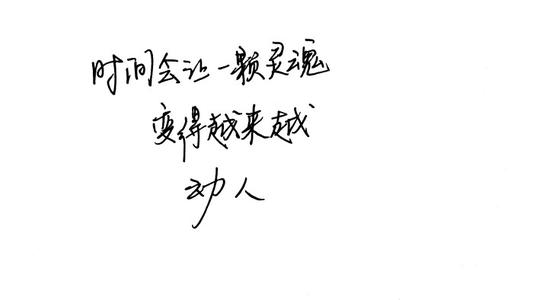 时间会让一颗灵魂
变得越来越
动人